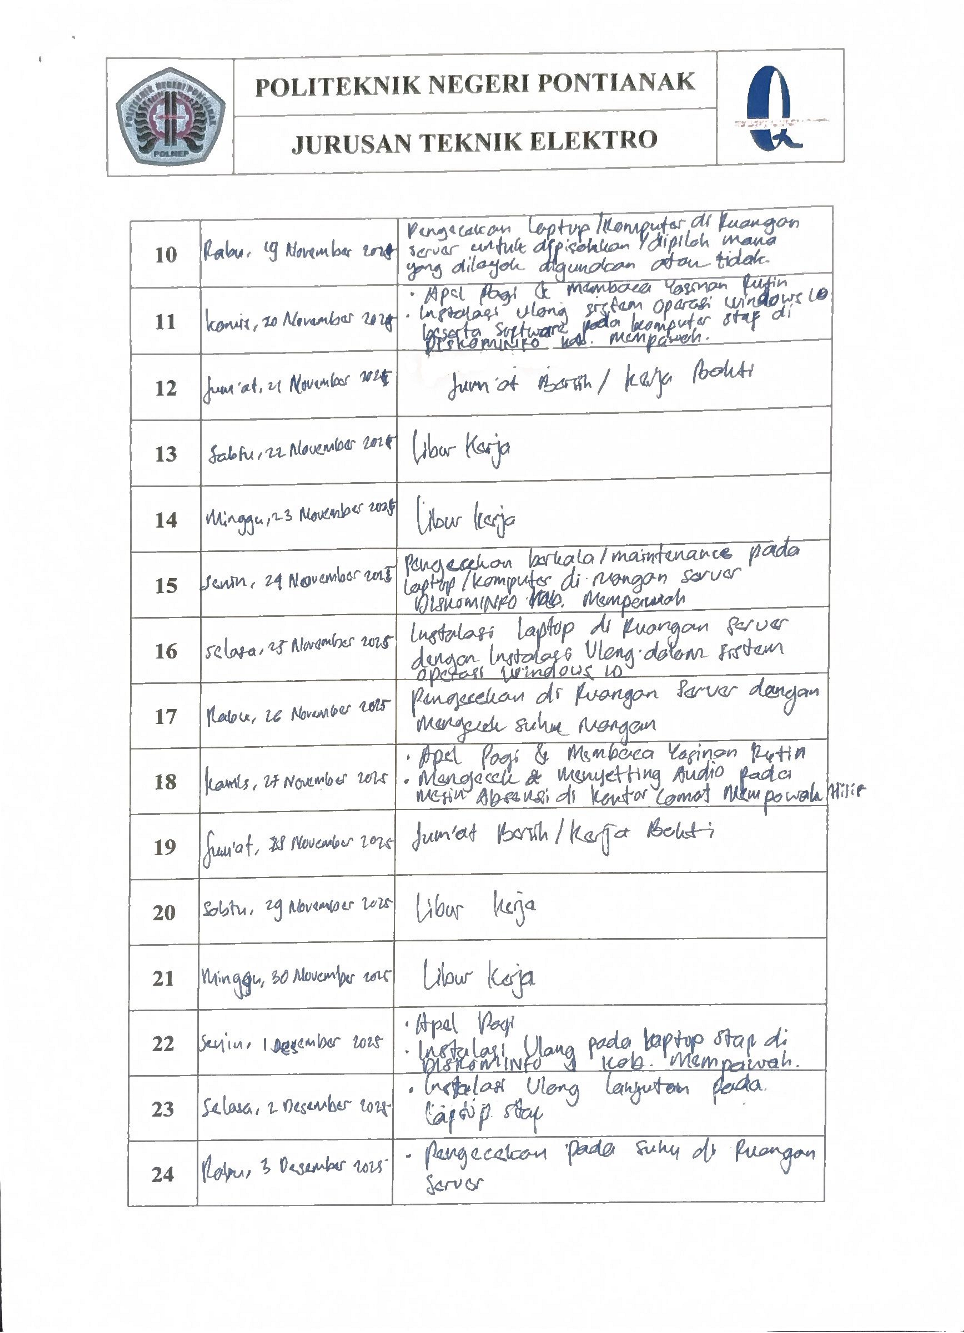 POLITEKNIK NEGERI PONTIANAK
JURUSAN TEKNIK ELEKTRO
POLITEKNIK NEGERI PONTIANAK
POLNEP
10
Rabu, 19 November 2025
Pengecekan Laptop/Komputer di Ruangan
server untuk dipisahkan / dipilah mana
yang dilayak digunakan atau tidak.
11
Kamis, 20 November 2025
• Apel Pagi & Membaca Yasinan Rutin
• Instalasi Ulang sistem operasi Windows 10
beserta Software pada komputer staf di
DISKOMINFO Kab. Mempawah.
12
Jum'at, 21 November 2025
Jum'at Bersih / Kerja Bakti
13
Sabtu, 22 November 2025
Libur Kerja
14
Minggu, 23 November 2025
Libur Kerja
15
Senin, 24 November 2025
Pengecekan berkala/maintenance pada
laptop/komputer di ruangan server
DISKOMINFO Kab. Mempawah
16
Selasa, 25 November 2025
Instalasi laptop di Ruangan server
dengan Instalasi Ulang dalam sistem
operasi Windows 10
17
Rabu, 26 November 2025
Pengecekan di Ruangan Server dangan
Mengecek suhu ruangan
18
Kamis, 27 November 2025
• Apel Pagi & Membaca Yasinan Rutin
• Mengecek & Menyetting Audio pada
Mesin Absensi di kantor Camat Mempawah Hilir
19
Jum'at, 28 November 2025
Jum'at Bersih/Kerja Bakti
20
Sabtu, 29 November 2025
Libur Kerja
21
Minggu, 30 November 2025
Libur Kerja
22
Senin, 1 Desember 2025
• Apel Pagi
• Instalasi Ulang pada laptop staf di
DISKOMINFO Kab. Mempawah.
23
Selasa, 2 Desember 2025
• Instalasi Ulang lanjutan pada
laptop staf
24
Rabu, 3 Desember 2025
• Pengecekan pada suhu di Ruangan
Server